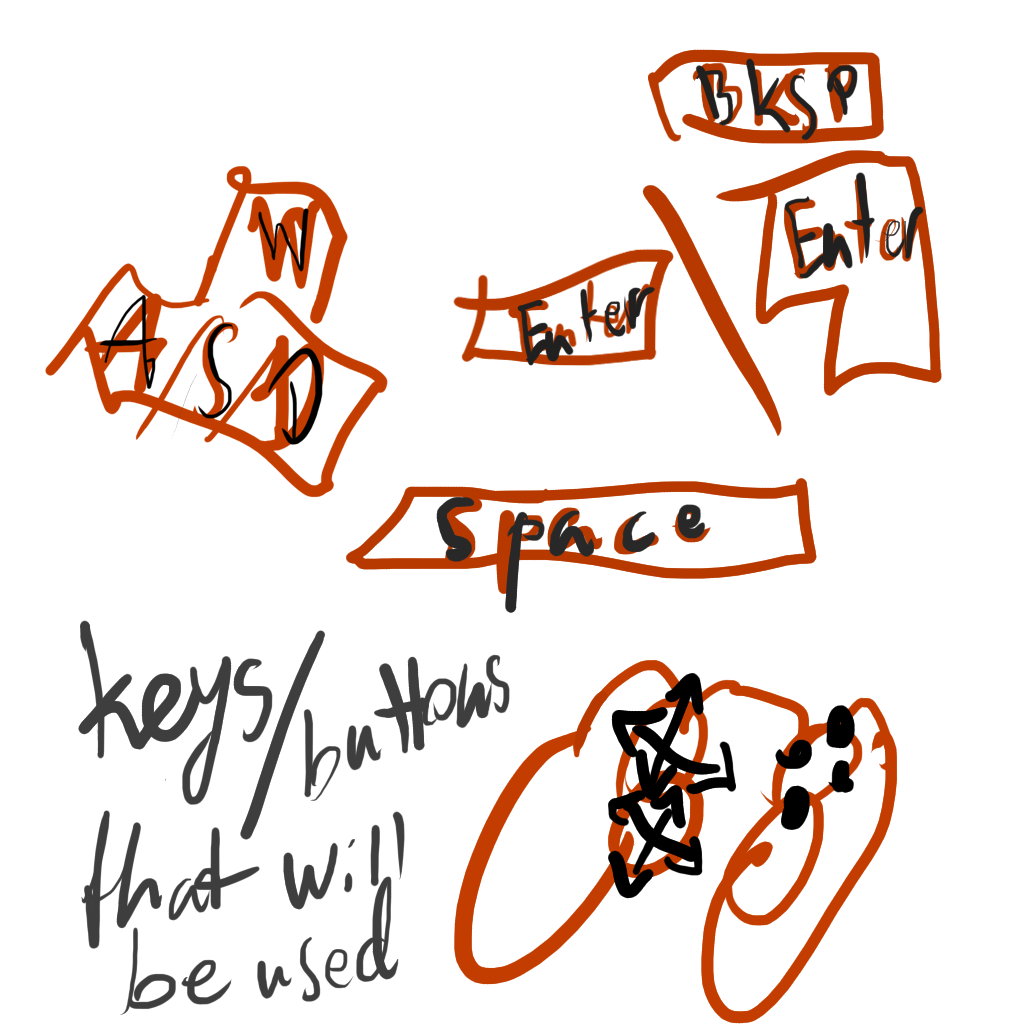 BKSP
W
Enter
A S D
Enter
Space
keys/
buttons
that will
be used